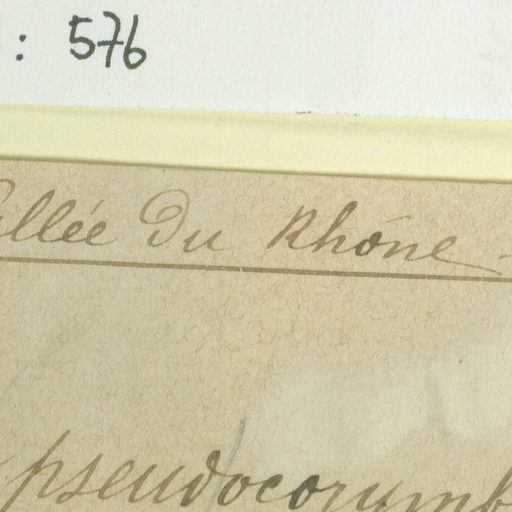 : 576
allée du Rhône -
pseudocorymb